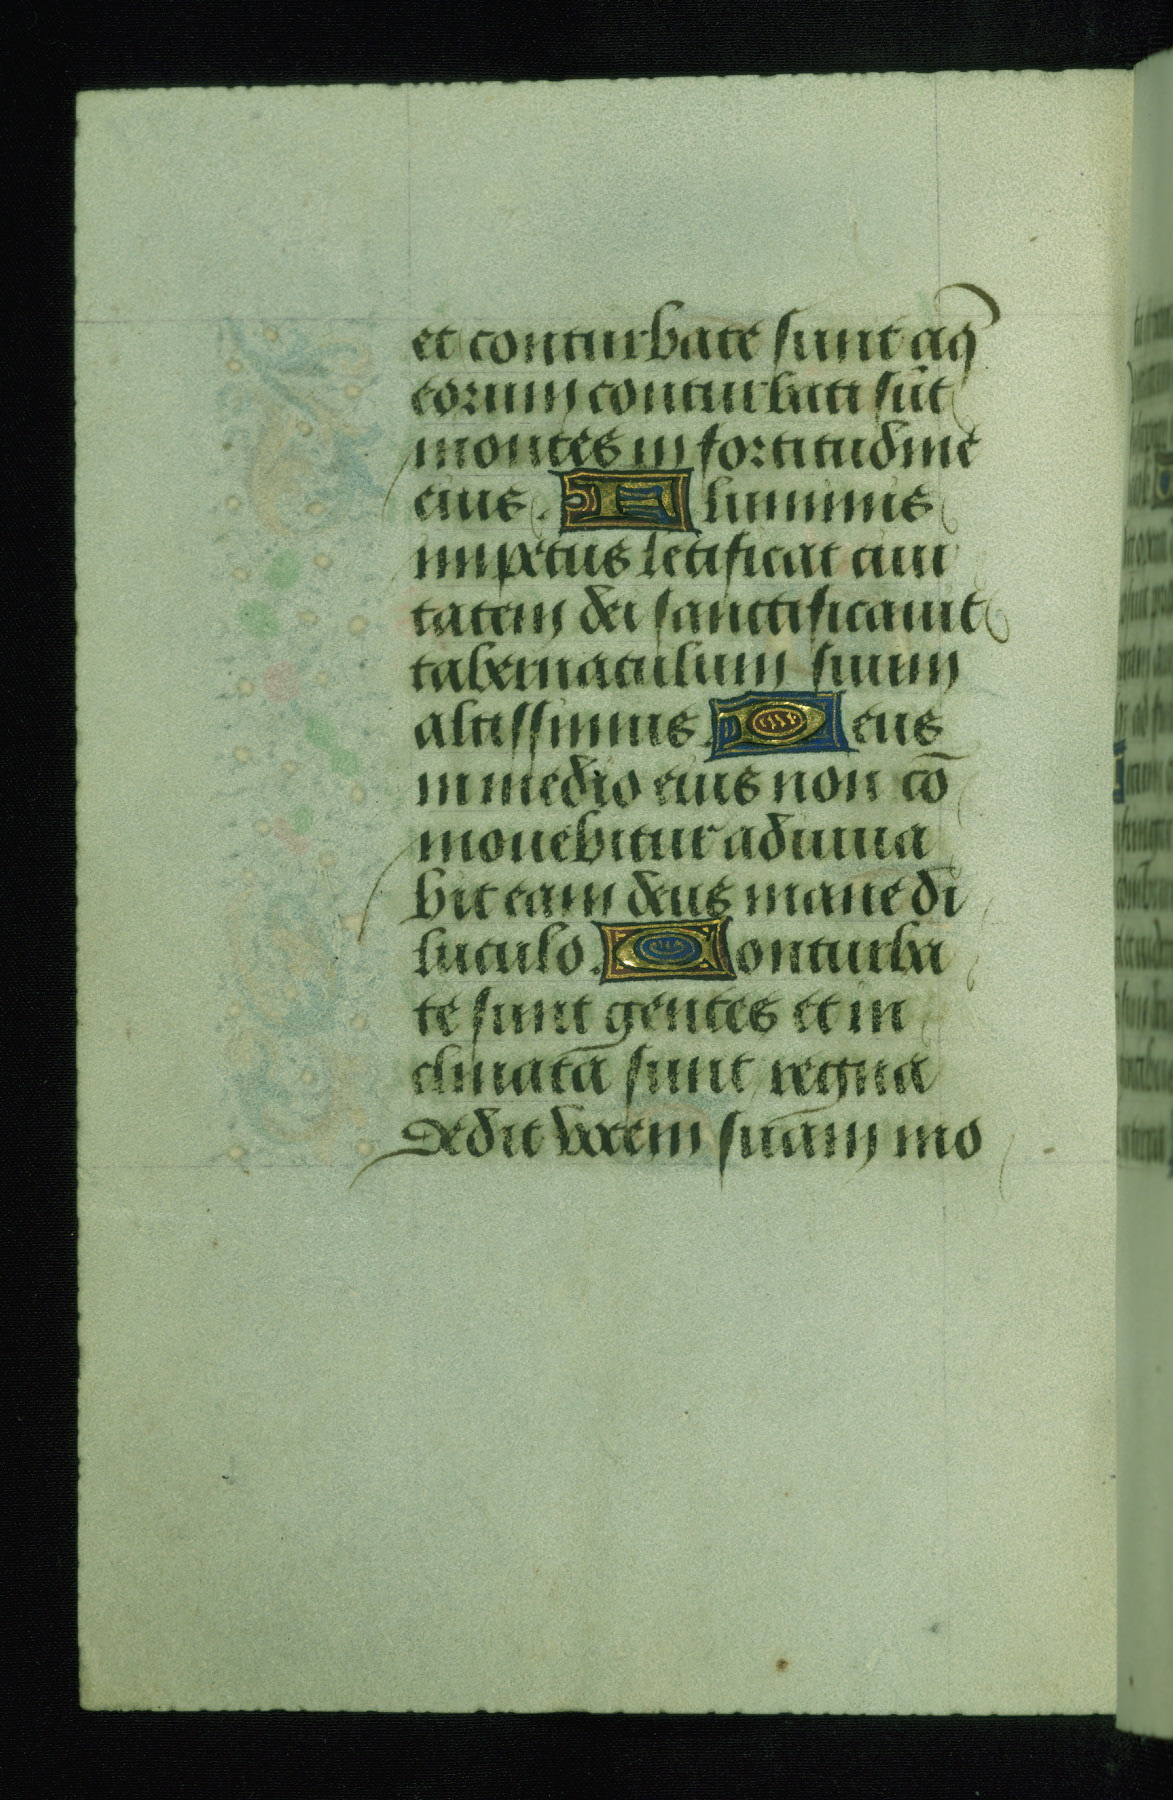 et conturbate sunt aq̄
eorum conturbati sūt
montes in fortitudine
eius. Fluminis
impetus letificat ciui
tatem dei sanctificauit
tabernaculum suum
altissimus. Deus
in medio eius non cō
mouebitur adiuua
bit eam deus mane di
luculo. Conturba
te sunt gentes et in
clinata sunt regna
dedit vocem suam mo